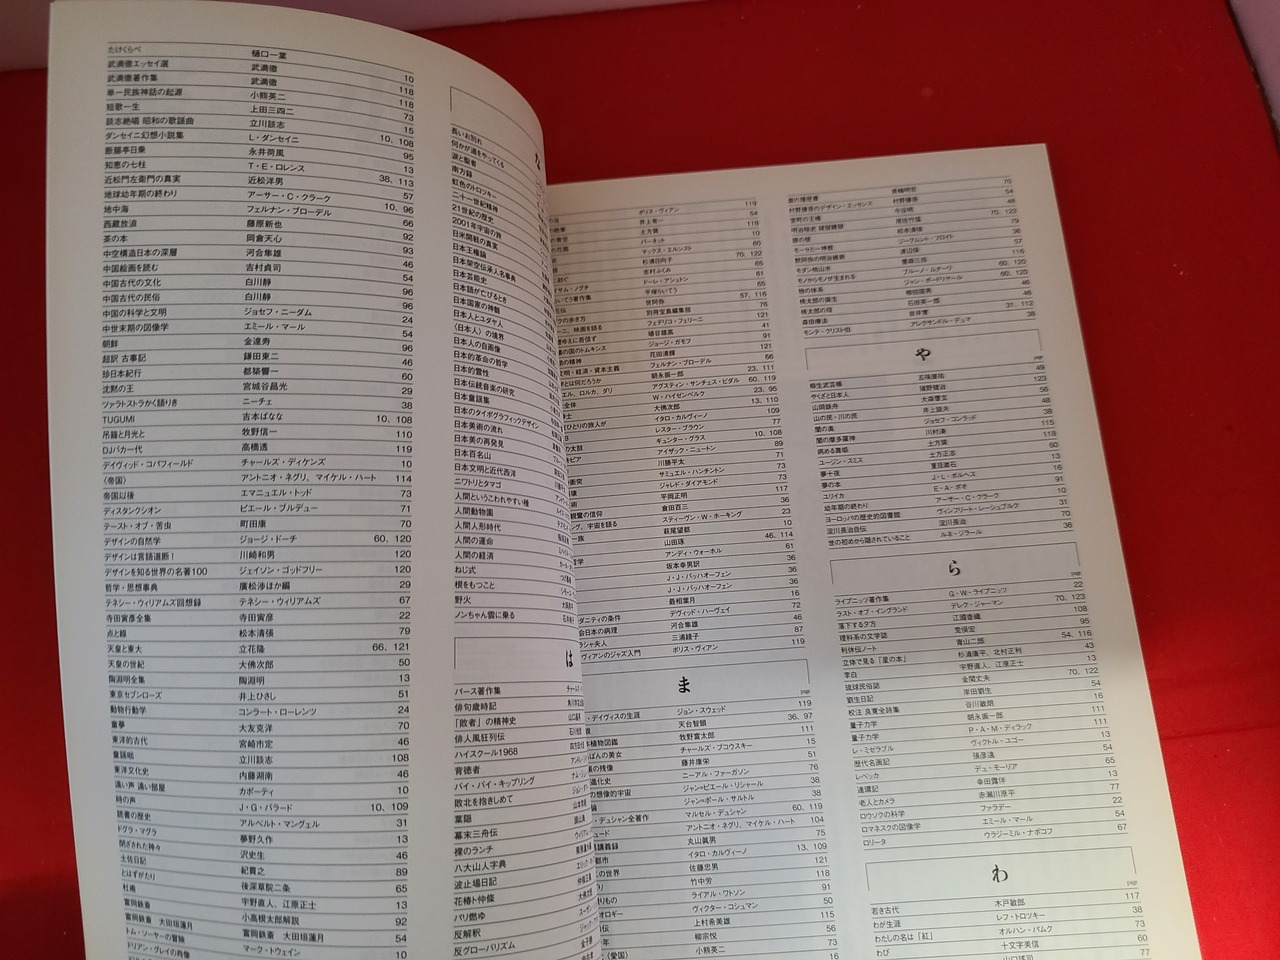 たけくらべ 樋口一葉 10
武満徹エッセイ選 武満徹 118
武満徹著作集 武満徹 118
単一民族神話の起源 小熊英二 73
短歌一生 上田三四二 15
談志絶唱 昭和の歌謡曲 立川談志 10、108
ダンセイニ幻想小説集 L・ダンセイニ 95
断腸亭日乗 永井荷風 13
知恵の七柱 T・E・ロレンス 38、113
近松門左衛門の真実 近松洋男 57
地球幼年期の終わり アーサー・C・クラーク 10、96
地中海 フェルナン・ブローデル 66
西蔵放浪 藤原新也 92
茶の本 岡倉天心 93
中空構造日本の深層 河合隼雄 46
中国絵画を読む 吉村貞司 54
中国古代の文化 白川静 96
中国古代の民俗 白川静 96
中国の科学と文明 ジョセフ・ニーダム 24
中世末期の図像学 エミール・マール 54
朝鮮 金達寿 96
超訳 古事記 鎌田東二 46
珍日本紀行 都築響一 60
沈黙の王 宮城谷昌光 29
ツァラトストラかく語りき ニーチェ 38
TUGUMI 吉本ばなな 10、108
吊籠と月光と 牧野信一 110
DJバカ一代 高橋透 119
デイヴィッド・コパフィールド チャールズ・ディケンズ 10
〈帝国〉 アントニオ・ネグリ、マイケル・ハート 114
帝国以後 エマニュエル・トッド 73
ディスタンクシオン ピエール・ブルデュー 71
テースト・オブ・苦虫 町田康 70
デザインの自然学 ジョージ・ドーチ 60、120
デザインは言語道断! 川崎和男 120
デザインを知る世界の名著100 ジェイソン・ゴッドフリー 120
哲学・思想事典 廣松渉ほか編 29
テネシー・ウィリアムズ回想録 テネシー・ウィリアムズ 67
寺田寅彦全集 寺田寅彦 22
点と線 松本清張 79
天皇と東大 立花隆 66、121
天皇の世紀 大佛次郎 50
陶淵明全集 陶淵明 13
東京セブンローズ 井上ひさし 51
動物行動学 コンラート・ローレンツ 24
童夢 大友克洋 70
東洋的古代 宮崎市定 46
童謡咄 立川談志 108
東洋文化史 内藤湖南 46
遠い声 遠い部屋 カポーティ 10
時の声 J・G・バラード 10、109
読書の歴史 アルベルト・マングェル 31
ドグラ・マグラ 夢野久作 13
閉ざされた神々 沢史生 46
土佐日記 紀貫之 89
とはずがたり 後深草院二条 65
杜甫 宇野直人、江原正士 13
富岡鉄斎 小高根太郎解説 92
富岡鉄斎 大田垣蓮月 富岡鉄斎 大田垣蓮月 54
トム・ソーヤーの冒険 マーク・トウェイン 10
ドリアン・グレイの肖像
な
長いお別れ
何かが道をやってくる
涙と聖者
南方録
虹色のトロツキー
二十一世紀精神
21世紀の歴史
2001年宇宙の旅
日米開戦の真実
日本王権論
日本架空伝承人名事典
日本芸能史
日本語が亡びるとき
日本国家の神髄
日本人とユダヤ人
〈日本人〉の境界
日本人の自画像
日本的革命の哲学
日本的霊性
日本伝統音楽の研究
日本童謡集
日本のタイポグラフィックデザイン
日本美術の流れ
日本美の再発見
日本百名山
日本文明と近代西洋
ニワトリとタマゴ
人間というこわれやすい種
人間動物園
人間人形時代
人間の運命
人間の経済
ねじ式
根をもつこと
野火
ノンちゃん雲に乗る
は
バース著作集
俳句歳時記
「敗者」の精神史
俳人風狂列伝
ハイスクール1968
背徳者
バイ・バイ・キップリング
敗北を抱きしめて
葉隠
幕末三舟伝
裸のランチ
八大山人字典
波止場日記
花椿ト仲條
パリ燃ゆ
反解釈
反グローバリズム
ボリス・ヴィアン 119
井上有一 54
土方巽 118
バーネット 10
マックス・エルンスト 60
杉浦日向子 70、122
吉村ふくみ 65
サム・ノグチ ドーレ・アシュトン 61
らいてう著作集 平塚らいてう 65
世阿弥 57、116
クの歩き方 別冊宝島編集部 76
ーニ、映画を語る フェデリコ・フェリーニ 121
ゆえに吾信ず 埴谷雄高 41
の国のトムキンス ジョージ・ガモフ 91
の精神 花田清輝 121
文明・経済・資本主義 フェルナン・ブローデル 66
とは何だろうか 朝永振一郎 23、111
エル、ロルカ、ダリ アグスティン・サンチェス・ビダル 60、119
全体 W・ハイゼンベルク 23、95
士 大佛次郎 13、110
ひとりの旅人が イタロ・カルヴィーノ 109
B レスター・ブラウン 77
の太鼓 ギュンター・グラス 10、108
キピア アイザック・ニュートン 89
川勝平太 71
衝突 サミュエル・ハンチントン 73
壊 ジャレド・ダイアモンド 77
術 平岡正明 117
観鷲の信仰 倉田百三 36
ング、宇宙を語る スティーヴン・W・ホーキング 23
一族 萩尾望都 10
山田琢 46、114
哲学 アンディ・ウォーホル 61
坂本幸男訳 36
J・J・バッハオーフェン 36
J・J・バッハオーフェン 36
最相葉月 16
ダニティの条件 デヴィッド・ハーヴェイ 72
会日本の病理 河合隼雄 46
ラシャ夫人 三浦綾子 87
ヴィアンのジャズ入門 ボリス・ヴィアン 119
ま
page
・デイヴィスの生涯 ジョン・スウェッド 119
天台智顗 36、97
植物図鑑 牧野富太郎 111
ばんの美女 チャールズ・ブコウスキー 15
の残像 藤井康栄 51
進化史 ニーアル・ファーガソン 76
の想像的宇宙 ジャン=ピエール・リシャール 38
論 ジャン=ポール・サルトル 38
・デュシャン全著作 マルセル・デュシャン 60、119
ュード アントニオ・ネグリ、マイケル・ハート 104
講義録 丸山眞男 75
都市 イタロ・カルヴィーノ 13、109
の世界 佐藤忠男 121
り 竹中労 118
りもの ライアル・ワトソン 91
オロギー ヴィクター・コシュマン 50
伝 上村希美雄 115
年 柳宗悦 56
〈愛国〉 小熊英二 73
16
無の履歴書 高橋明宏 70
村野藤吾のデザイン・エッセンス 村野藤吾 54
寺住明 46
尾佐竹猛 70、122
明治怪史 疑獄難獄 松本清張 79
眼の壁 ジークムント・フロイト 36
モーセと一神教 渡辺保 57
黙阿弥の明治維新 116
モダン枯山水 重森三玲 60、120
モノからモノが生まれる ブルーノ・ムナーリ 60、120
物の体系 ジャン・ボードリヤール
桃太郎の誕生 柳田國男 46
桃太郎の母 石田英一郎 46
森田療法 岩井寛 31、112
モンテ・クリスト伯 アレクサンドル・デュマ 38
や
page
柳生武芸帳 五味康祐 49
やくざと日本人 猪野健治 123
山岡鉄舟 大森曹玄 56
山の民・川の民 井上鋭夫 48
闇の奥 ジョセフ・コンラッド 38
闇の摩多羅神 川村湊 115
病める舞姫 土方巽 118
ユージン・スミス 土方正志 60
夢十夜 夏目漱石 13
夢の本 J・L・ボルヘス 16
ユリイカ E・A・ポオ 91
幼年期の終わり アーサー・C・クラーク 10
ヨーロッパの歴史的図書館 ヴィンフリート・レーシュブルク 31
淀川長治自伝 淀川長治 70
世の初めから隠されていること ルネ・ジラール 36
ら
page
ライプニッツ著作集 G・W・ライプニッツ 22
ラスト・オブ・イングランド デレク・ジャーマン 70、123
落下する夕方 江國香織 108
理科系の文学誌 荒俣宏 95
利休伝ノート 青山二郎 54、116
立体で見る「星の本」 杉浦康平、北村正利 43
李白 宇野直人、江原正士 13
琉球民俗誌 金関丈夫 70、122
劉生日記 岸田劉生 54
校注 良寛全詩集 谷川敏朗 16
量子力学 朝永振一郎 111
量子力学 P・A・M・ディラック 111
レ・ミゼラブル ヴィクトル・ユゴー 13
歴代名画記 張彦遠 54
レベッカ デュ・モーリア 65
連環記 幸田露伴 13
老人とカメラ 赤瀬川原平 77
ロウソクの科学 ファラデー 22
ロマネスクの図像学 エミール・マール 54
ロリータ ウラジーミル・ナボコフ 67
わ
page
若き古代 木戸敏郎 117
わが生涯 レフ・トロツキー 38
わたしの名は「紅」 オルハン・パムク 73
わび 十文字美信 60
77